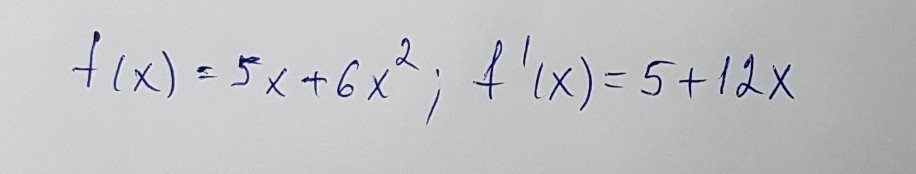 f(x) = 5x + 6x²; f'(x) = 5 + 12x